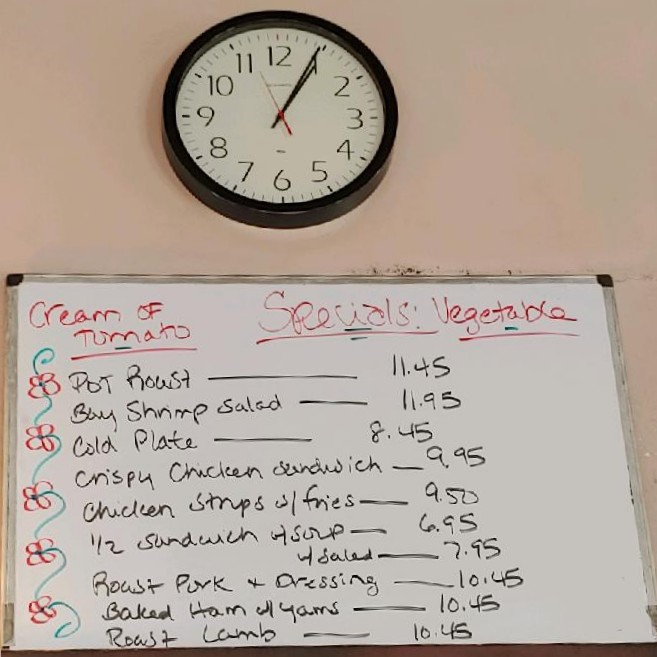 12
11
1
10
2
9
3
8
4
7
5
6
Cream of Tomato
Specials: Vegetable
Pot Roast 11.45
Bay Shrimp salad 11.95
Cold Plate 8.45
Crispy Chicken sandwich 9.95
Chicken strips w/ fries 9.50
1/2 sandwich w/soup 6.95
w/salad 7.95
Roast Pork + Dressing 10.45
Baked Ham w/ yams 10.45
Roast Lamb 10.45